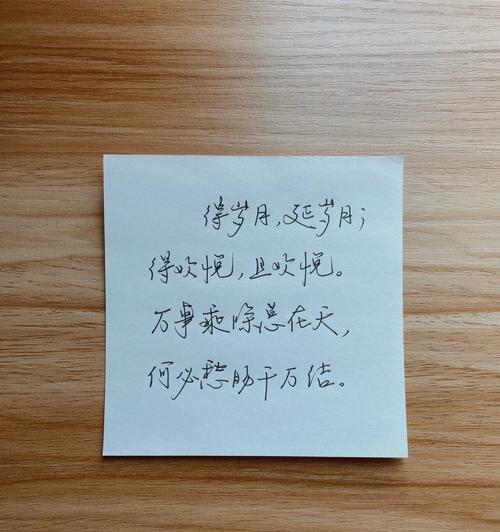 得岁月，延岁月；
得欢悦，且欢悦。
万事乘除总在天，
何必愁肠千万结。